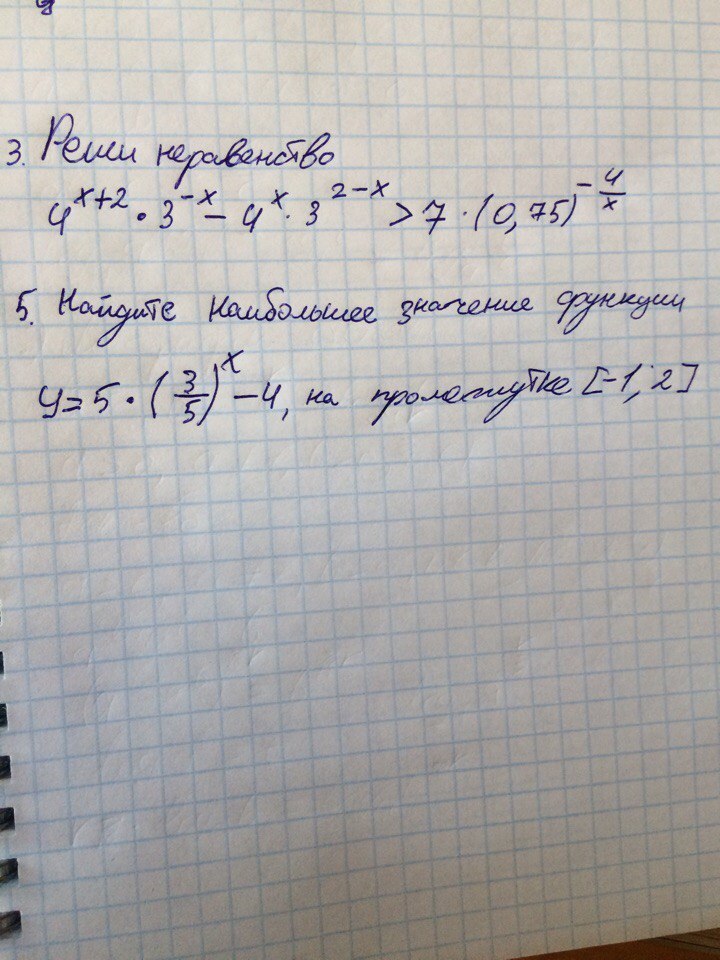 3. Реши неравенство
4^{x+2} · 3^{-x} - 4^x · 3^{2-x} > 7 · (0,75)^{-\frac{4}{x}}
5. Найдите наибольшее значение функции
y = 5 · (\frac{3}{5})^x - 4, на промежутке [-1; 2]